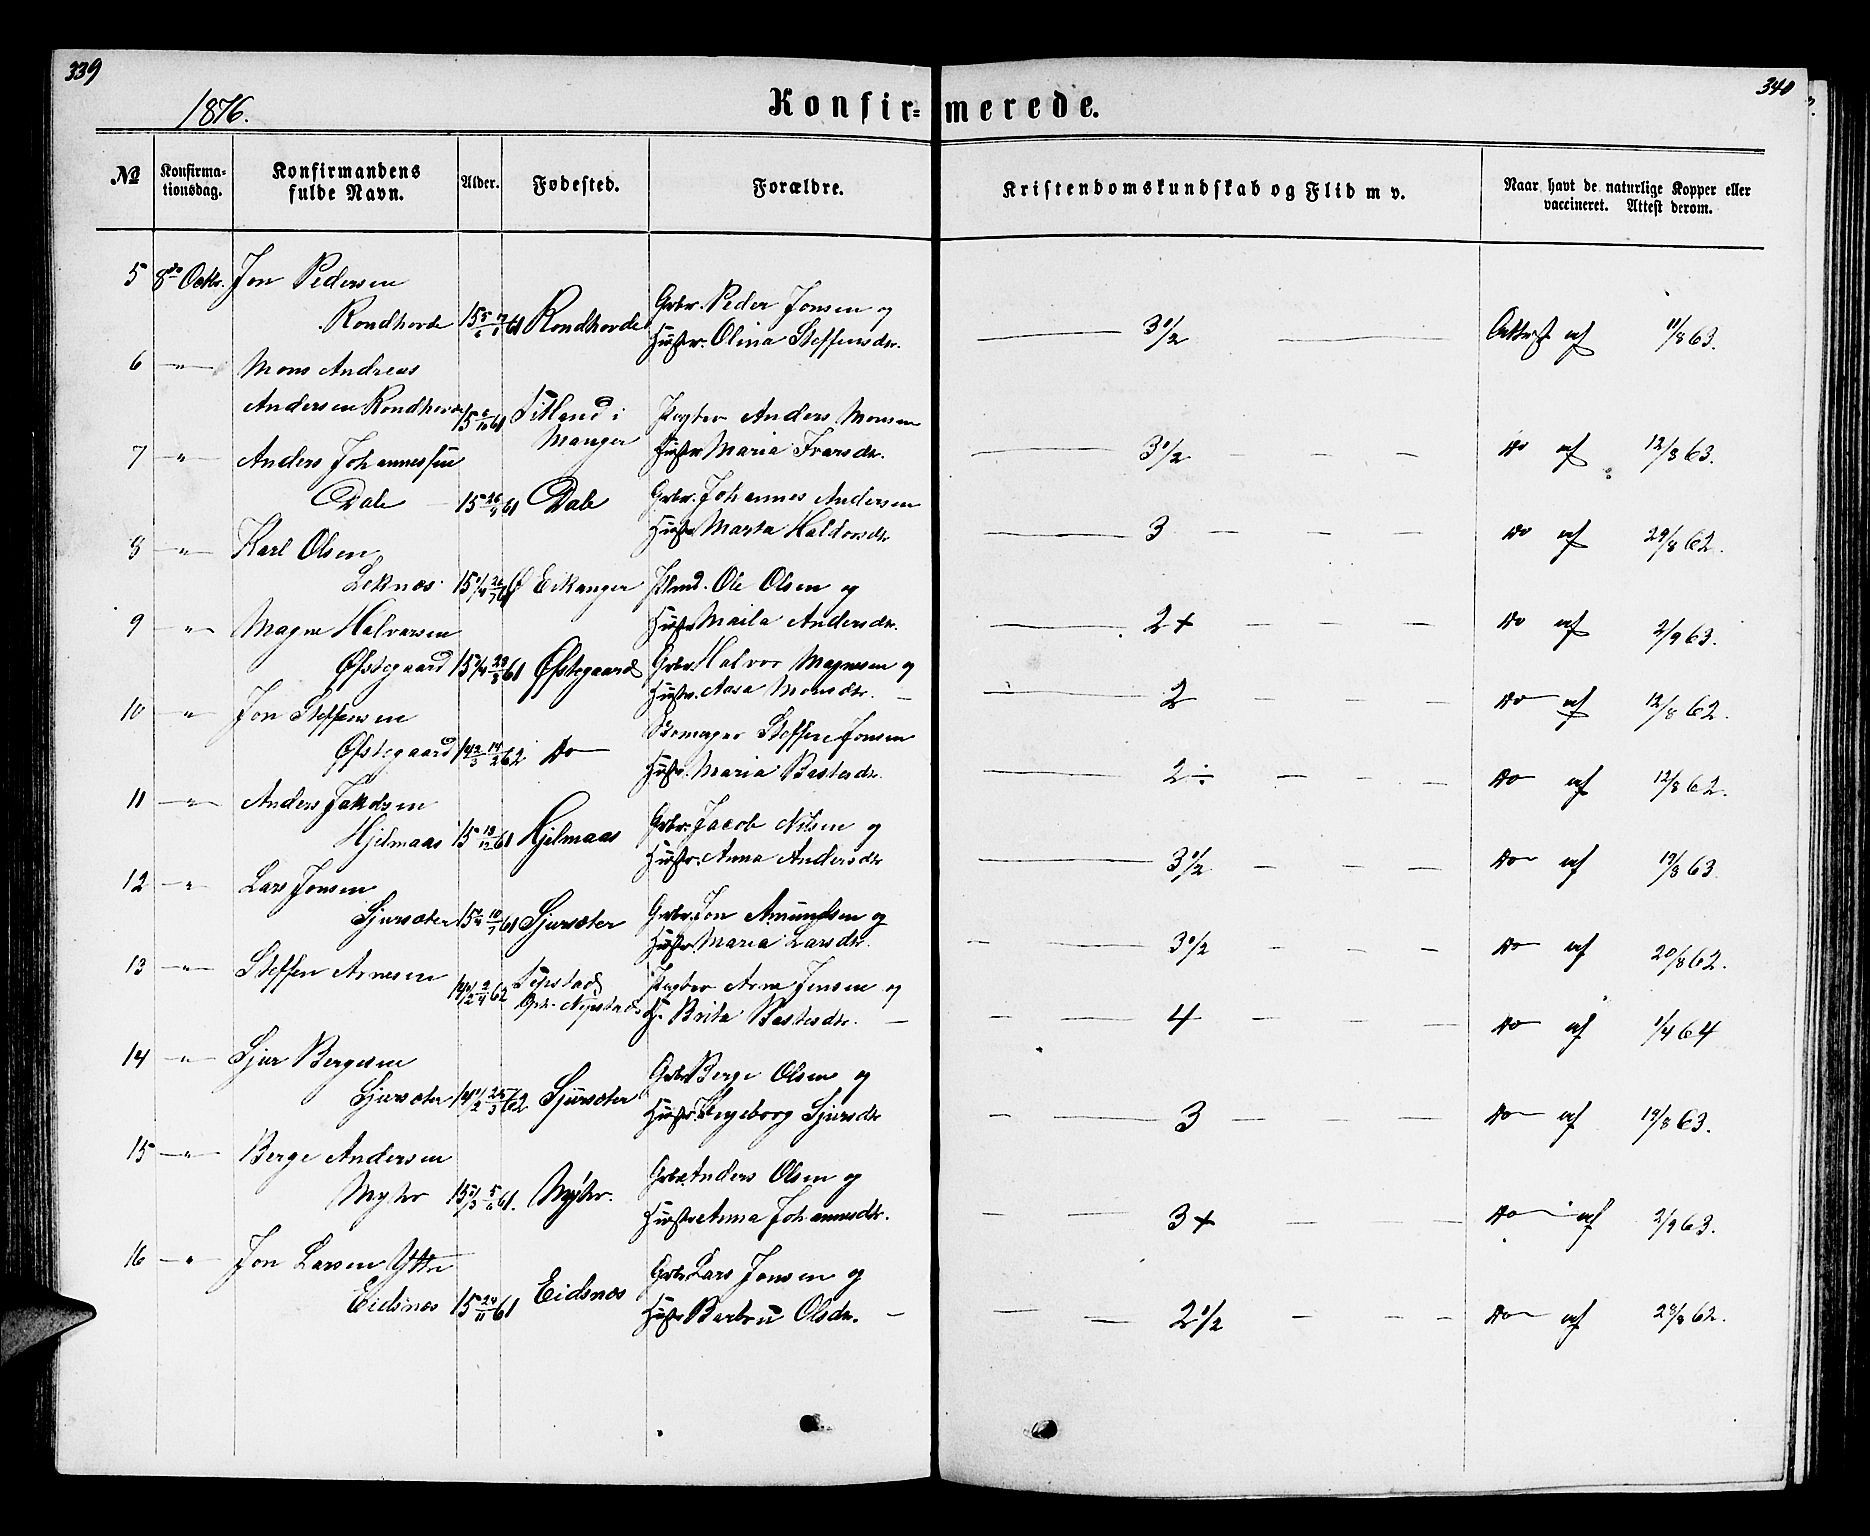 339
340
1876.
Konfir=merede.
№
Konfirma-
tionsdag.
Konfirmandens
fulde Navn.
Alder.
Fødested.
Forældre.
Kristendomskundskab og Flid m v.
Naar havt de naturlige Kopper eller
vaccineret. Attest derom.
5 8de Octbr. Jon Pedersen
Rondhovde 15 61 Rondhovde Grbr. Peder Jonsen og
Hustr. Olina Steffensdr. 3 1/2 Attest af 11/8 63.
6 —"— Mons Andreas
Andersen Rondhovde 15 61 Litland i
Manger Anders Monsen
Hustr Maria Ivarsdr. 3 1/2 Do af 12/8 63.
7 —"— Anders Johannessen
Dale 15 61 Dale Grbr. Johannes Andersen
Hustr Marta Haldorsdr 3 Do af 29/8 62.
8 —"— Karl Olsen
Leknæs 15 1/4 Eikanger Ole Olsen og
Hustr Andersdr. 2+ Do af 2/9 63.
9 —"— Magne Halvorsen
Øfstegaard 15 1/4 61 Øfstegaard Grbr. Halvor Magnesen og
Hustr. Aasa Monsdr. 2 Do af 12/8 62.
10 —"— Jon Steffensen
Øfstegaard 14 2/3 62 Do Steffen Jonsen
Hustr. Maria Bastesdr. 2÷ Do af 12/8 62.
11 —"— Anders Jakobsen
Hjelmaas 15 18/12 61 Hjelmaas Grbr. Jacob Nilsen og
Hustr. Anna Andersdr 3 1/2 Do af 19/8 63
12 —"— Lars Jonsen
Sjursæter 15 61 Sjursæter Grbr. Jon Amundsen og
Hustr Maria Larsdr. 3 1/2 Do af 20/8 62.
13 —"— Steffen Arnesen 14 1/2 2/4 62 Arne Jensen og
H. Brita Bastesdr. 4 Do af 1/4 64
14 —"— Sjur Bergesen
Sjursæter 14 1/2 25/3 62 Sjursæter Grbr Berge Olsen og
Hustr Ingeborg Sjursdr 3 Do af 19/8 63.
15 —"— Berge Andersen
Myhr 15 1/3 5/6 61. Myhr. Grbr. Anders Olsen og
Hustr Anna Johannesdr. 3+ Do af 2/9 63.
16 —"— Jon Larsen Yttre
Eidsnæs 15 24/11 61 Eidsnæs Grbr Lars Jonsen og
Hustr Barbru Olsdr. 2 1/2 Do af 28/8 62.